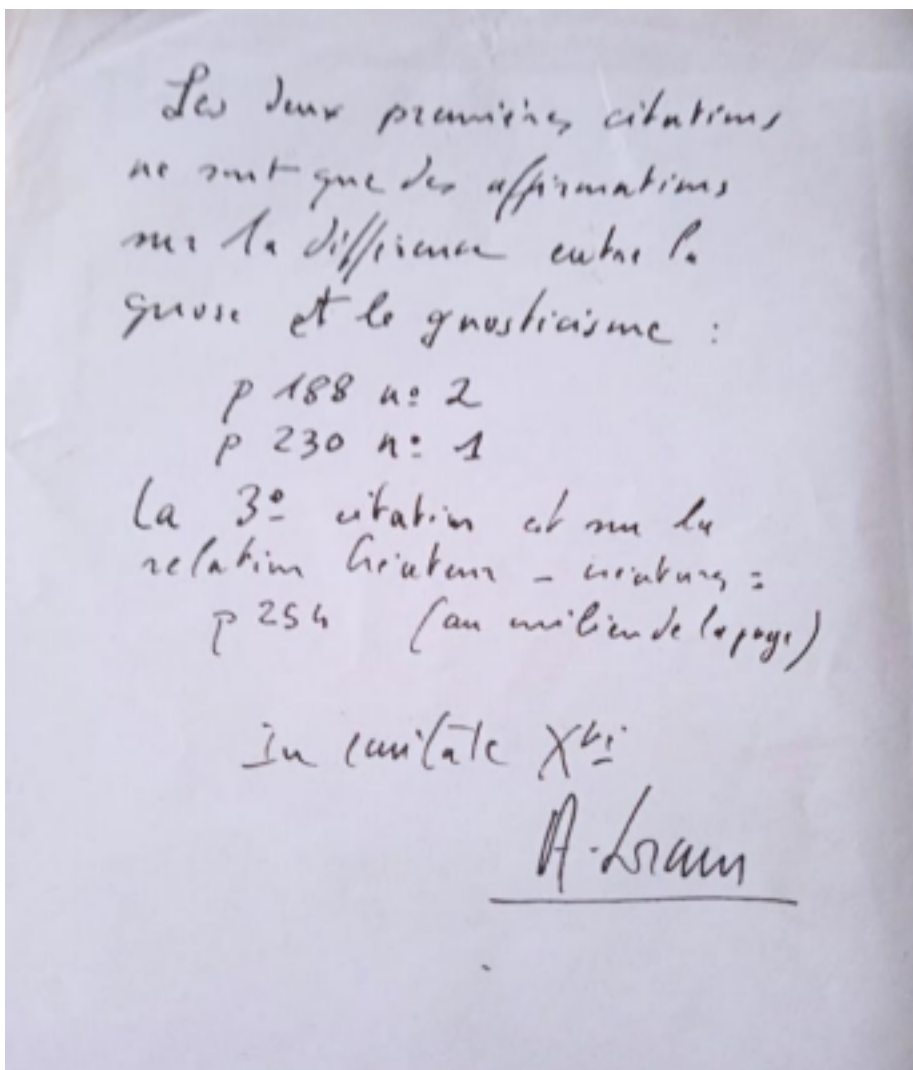 Les deux premières citations
ne sont que des affirmations
sur la différence entre la
gnose et le gnosticisme :
p 188 nº 2
p 230 nº 1
La 3º citation est sur la
relation Créateur - créature :
p 254 (au milieu de la page)
In caritate Xti
A.